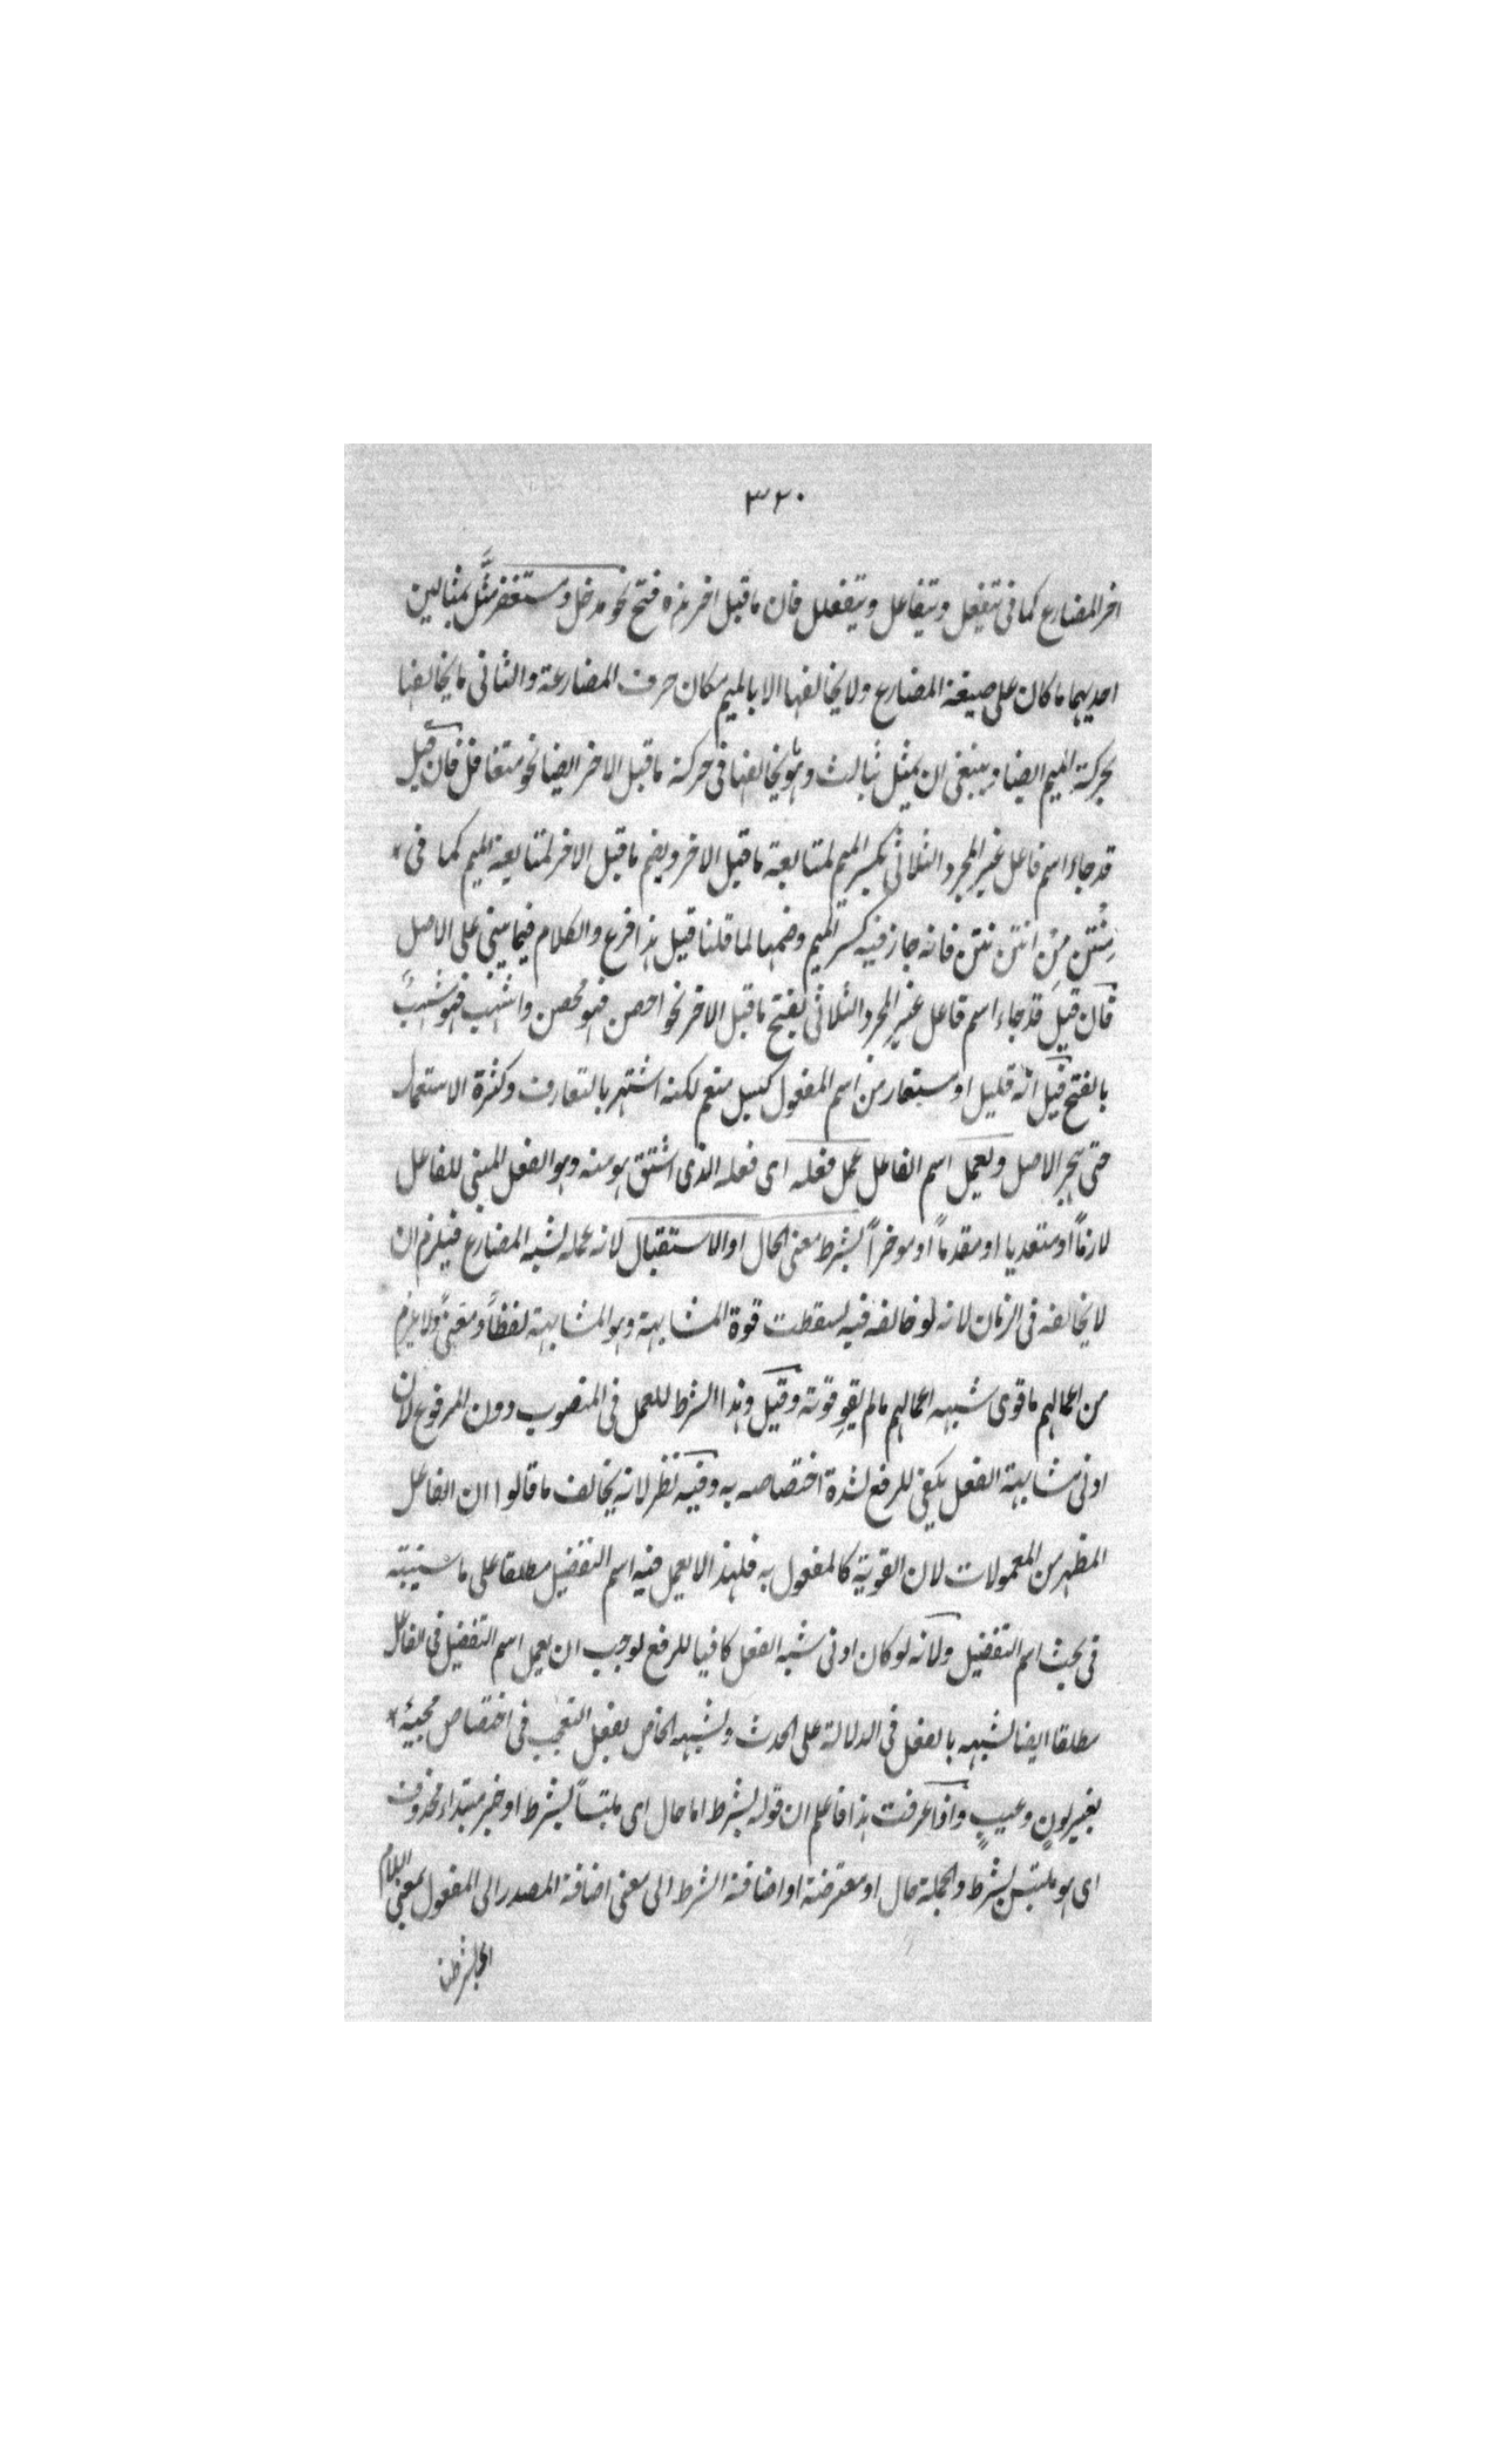 ٣٢٠
اخر المضارع كما فى يتفعل ويتفاعل ويتفعلل فان ما قبل اخر هذه فتح نحو مدخل ومستغفر مثّل بمثالين
احديهما ما كان على صيغة المضارع ولا يخالفها الا بالميم مكان حرف المضارعة والثانى ما يخالفها
بحركة الميم ايضا وينبغى ان يمثل بثالث وهو يخالفها فى حركة ما قبل الاخر ايضا نحو متغافل فان قيل
قد جاء اسم فاعل غير المجرد الثلاثى بكسر الميم لمتابعة ما قبل الاخر وبضم ما قبل الاخر لمتابعة الميم كما فى
مِنُتن مِن انتن نتن فانه جاز فيه كسر الميم وضمها لما قلنا قيل هذا فرع والكلام فيما يبنى على الاصل
فان قيل قد جاء اسم فاعل غير المجرد الثلاثى بفتح ما قبل الاخر نحو احصن فهو محصن واشهب فهو مشهب
بالفتح قيل انه قليل او مستعار من اسم المفعول كسيل مفعم لكنه اشتهر بالتعارف وكثرة الاستعمال
حتى هجر الاصل ويعمل اسم الفاعل عمل فعله اى فعله الذى اشتق هو منه وهو الفعل المبنى للفاعل
لازمًا او متعديا او مقدمًا او موخراً بشرط معنى الحال او الاستقبال لانه عمله لشبه المضارع فيلزم ان
لا يخالفه فى الزمان لانه لو خالفه فيه لسقطت قوة المشابهة وهو المشابهة لفظاً ومعنىً ولا يلزم
من اعمالهم ما قوى شبهه اعمالهم ما لم يقوِ قوته وقيل وهذا الشرط للعمل فى المنصوب دون المرفوع لان
ادنى مشابهة الفعل يكفى للرفع لشدة اختصاصه به وفيه نظر لانه يخالف ما قالوا ان الفاعل
المظهر من المعمولات لان القوية كالمفعول به فلهذا لا يعمل فيه اسم التفضيل مطلقا على ما سيبيّنه
فى بحث اسم التفضيل ولانه لو كان ادنى شبه الفعل كافيا للرفع لوجب ان يعمل اسم التفضيل فى الفاعل
مطلقا ايضا لشبهه بالفعل فى الدلالة على الحدث ولشبهه الخاص بفعل التعجب فى اختصاص مجيئه
بغير لونٍ وعيبٍ واذا عرفت هذا فاعلم ان قوله بشرط اما حال اى ملتبساً بشرط او خبر مبتداء محذوف
اى هو ملتبس بشرط والجملة حال او معترضة او اضافة الشرط الى معنى اضافة المصدر الى المفعول بمعنى اللام